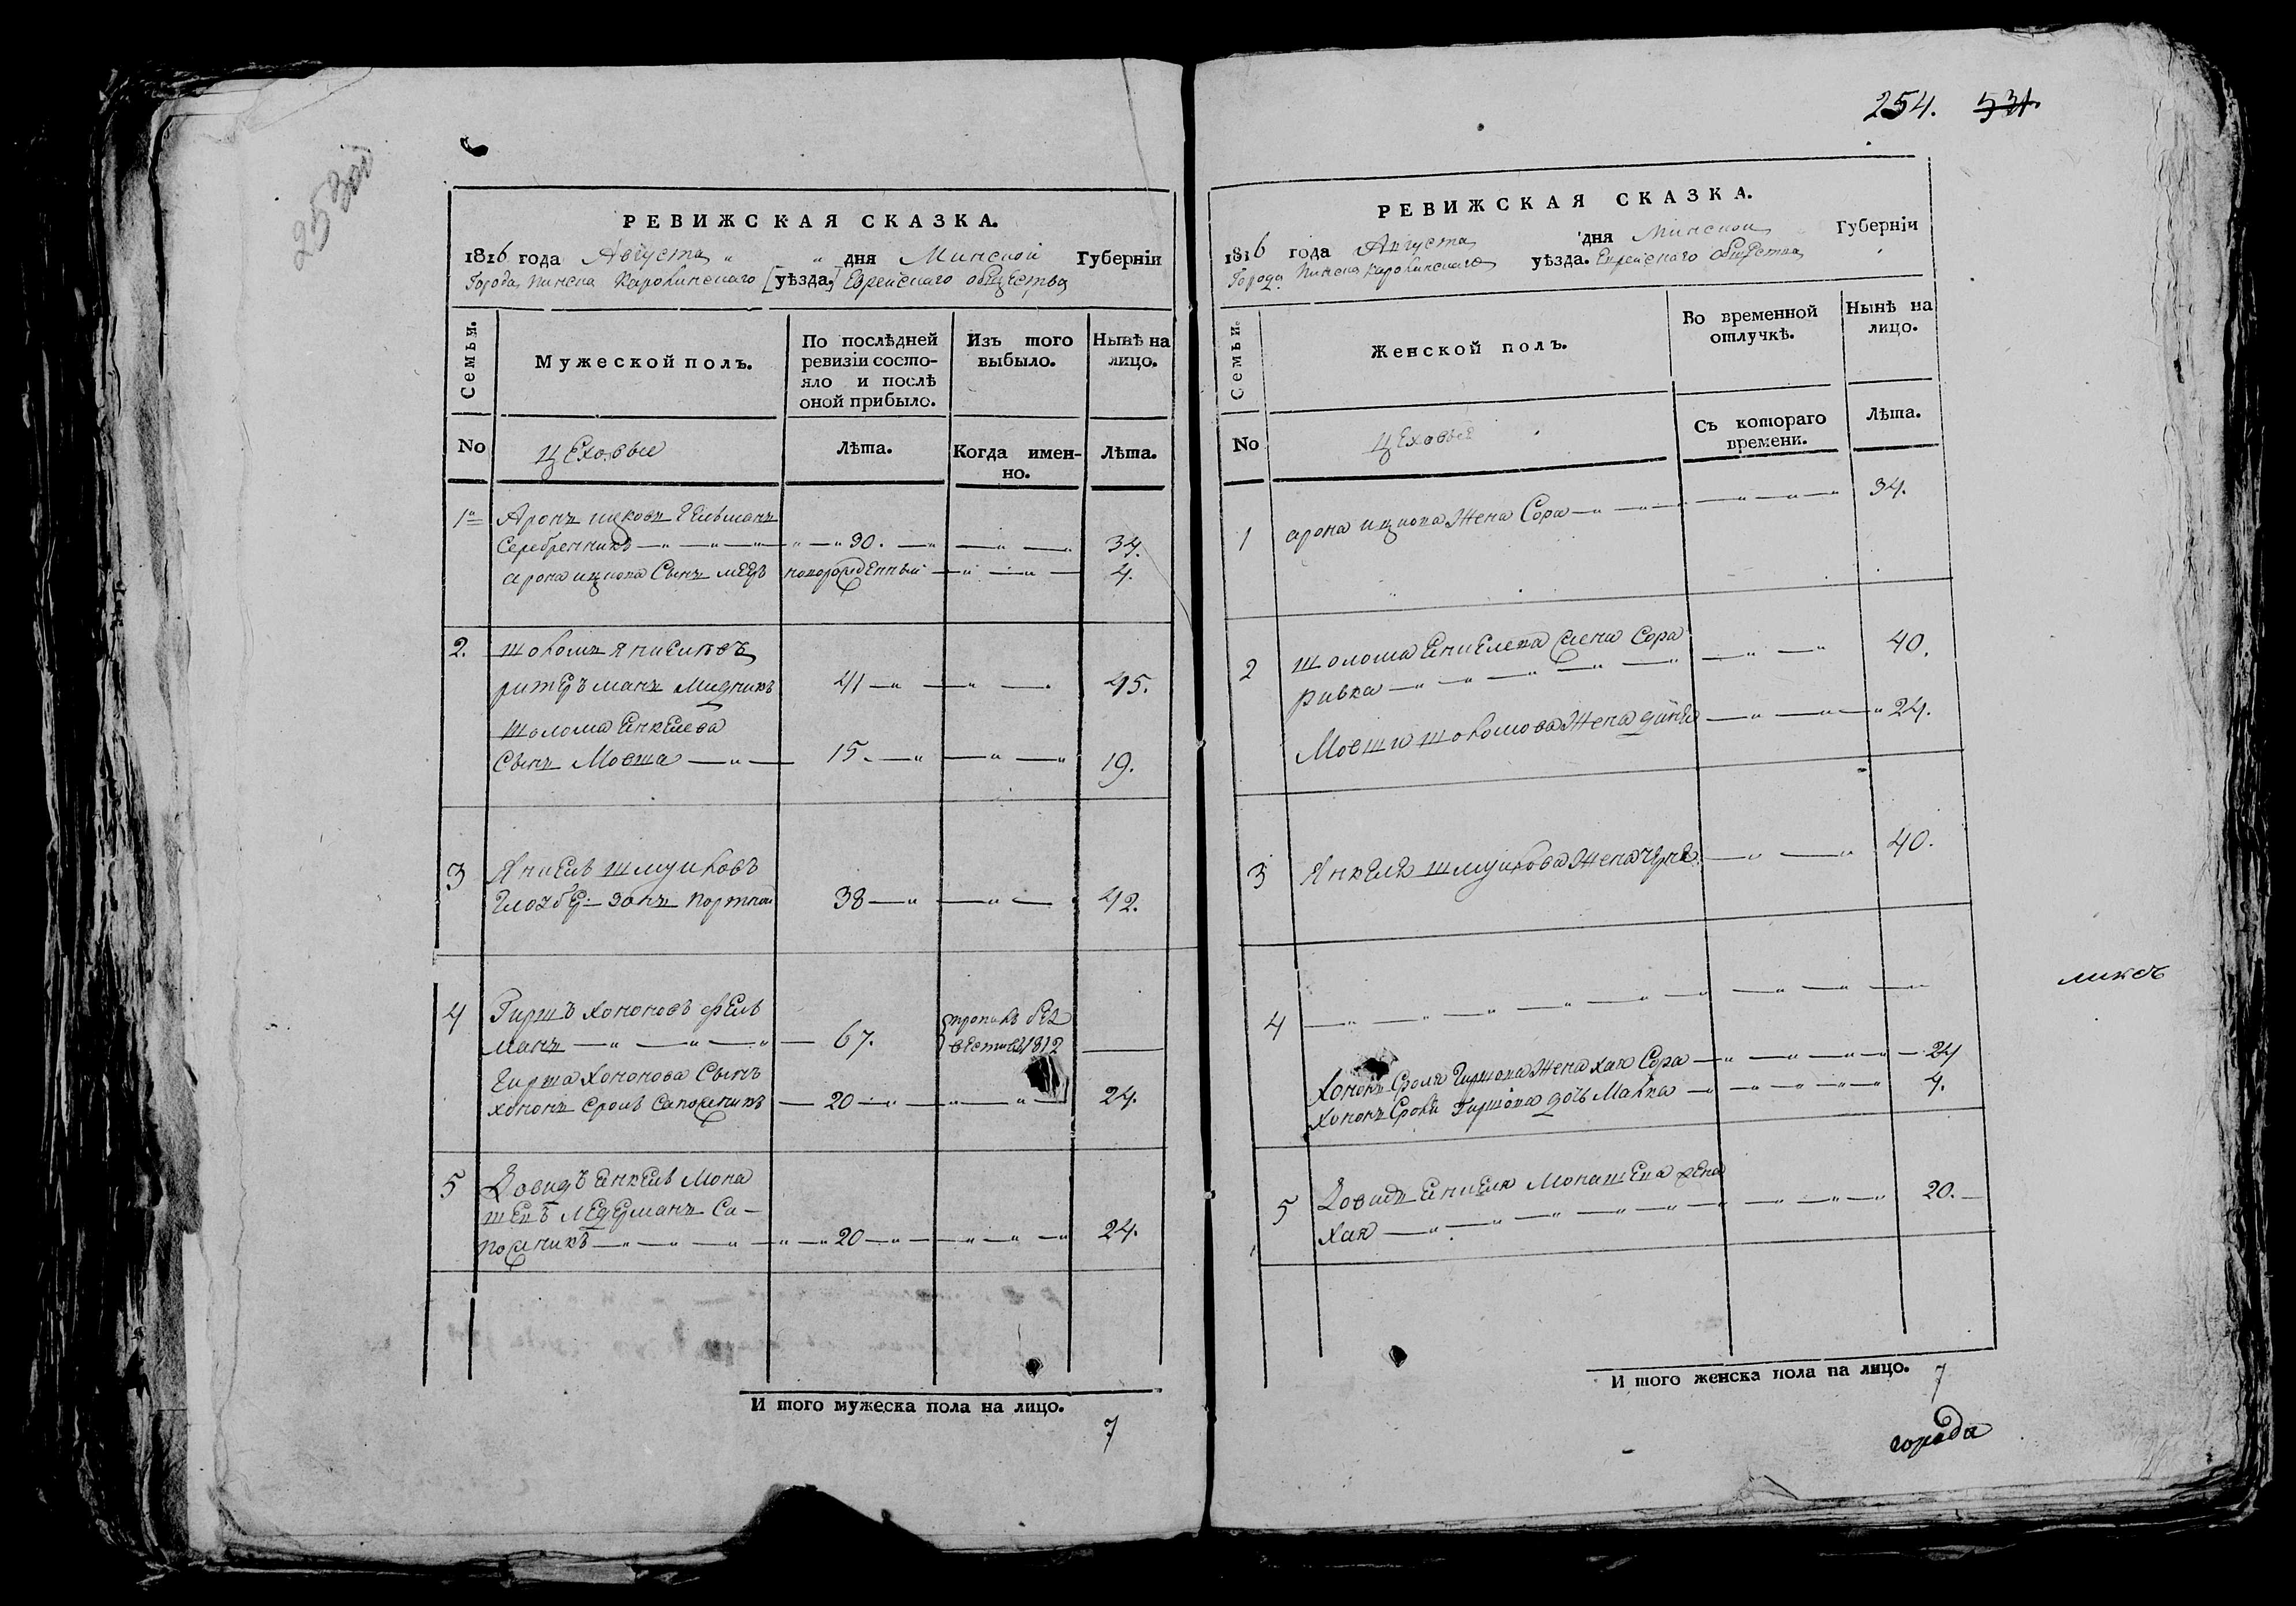 РЕВИЖСКАЯ СКАЗКА.
1816 года Августа " " дня Минской Губерніи
Города Пинска Каролинскаго [уѣзда.] Еврейскаго общества
Семьи.
Мужеской полъ.
По послѣдней ревизіи состо-
яло и послѣ
оной прибыло.
Изъ того
выбыло.
Нынѣ на
лицо.
No
Цеховые
Лѣта.
Когда имен-
но.
Лѣта.
1
Аронъ ицковъ
Серебренникъ 30. 34.
арона ицкова Сынъ новорожденный 4.
2.
шоломъ Янкелевъ
ритерманъ Мидникъ 41 45.
шолома Енкелева
Сынъ Мовша 15. 19.
3
Янкель шмуйловъ
портной 38 42.
4
Гиршъ Хононовъ фель
манъ 67. пропалъ без
вести 1812
Гирша Хононова Сынъ
хононъ сроль сапожникъ 20 24.
5
Довидъ Енкель Мона
шевъ Ледерманъ Са-
пожникъ 20 24.
И того мужеска пола на лицо.
7
254. 531.
РЕВИЖСКАЯ СКАЗКА.
1816 года Августа дня Минской Губерніи
Города Пинска Каролинскаго уѣзда. Еврейскаго общества
Семьи.
Женской полъ.
Во временной
отлучкѣ.
Нынѣ на
лицо.
No
Цеховые
Съ котораго
времени.
Лѣта.
1
арона ицкова Жена Сора 34.
2
шолома Енкелева жена Сора
ривка 40.
Мовши шоломова Жена 24.
3
Янкеля шмуйлова Жена 40.
4
Хононъ Сроля Гиршова Жена хая Сора 24
Хононъ Сроля Гиршова дочь Малка 4.
5
Довидъ Енкеля Монашева жена
Хая 20.
И того женска пола на лицо. 7
города